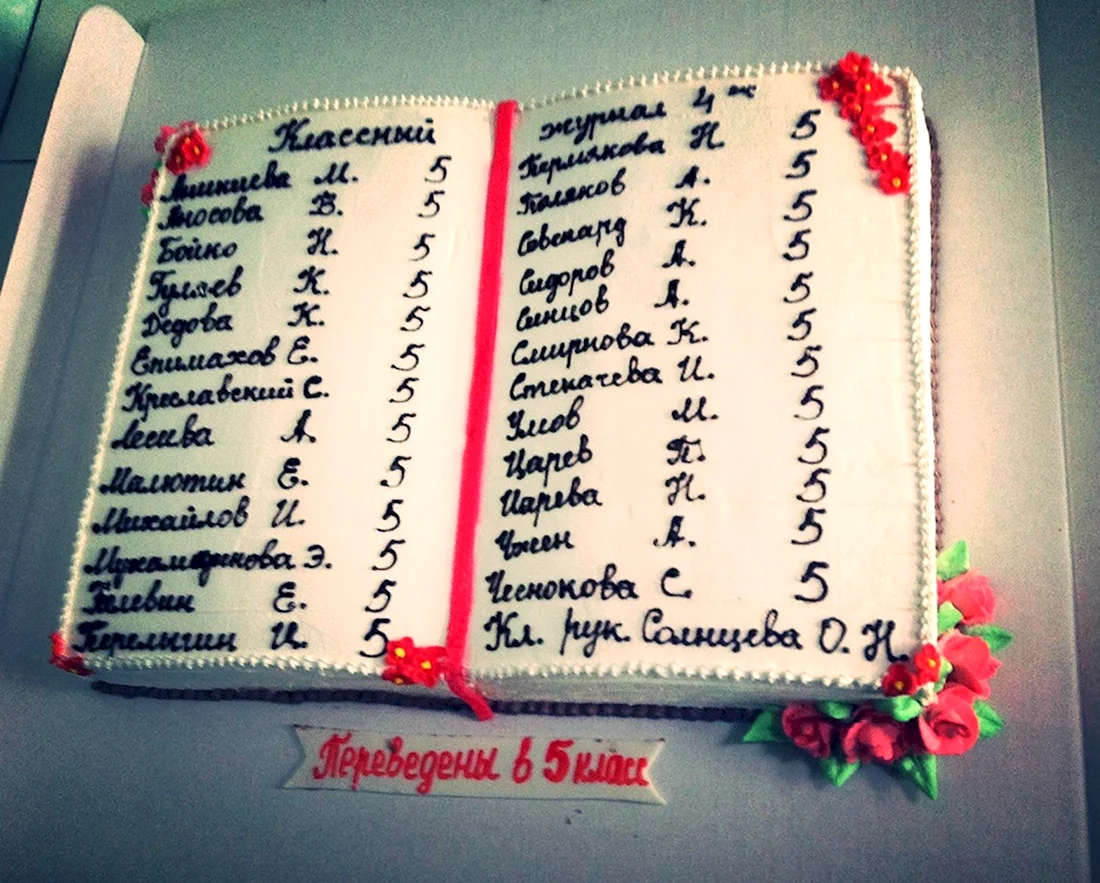 Классный
Аникиева М. 5
Аносова В. 5
Бойко Н. 5
Гуляев К. 5
Дедова К. 5
Епимахов Е. 5
Креславский С. 5
Лесива А. 5
Малютин Е. 5
Михайлов И. 5
Э. 5
Пелевин Е. 5
Перелыгин И. 5
журнал 4
Пермякова Н. 5
Поляков А. 5
К. 5
Сидоров А. 5
Синцов А. 5
Смирнова К. 5
Стекачева И. 5
Умов М. 5
Царев П. 5
Царева Н. 5
Чжен А. 5
Чеснокова С. 5
Кл. рук. Солнцева О. Н.
Переведены в 5 класс